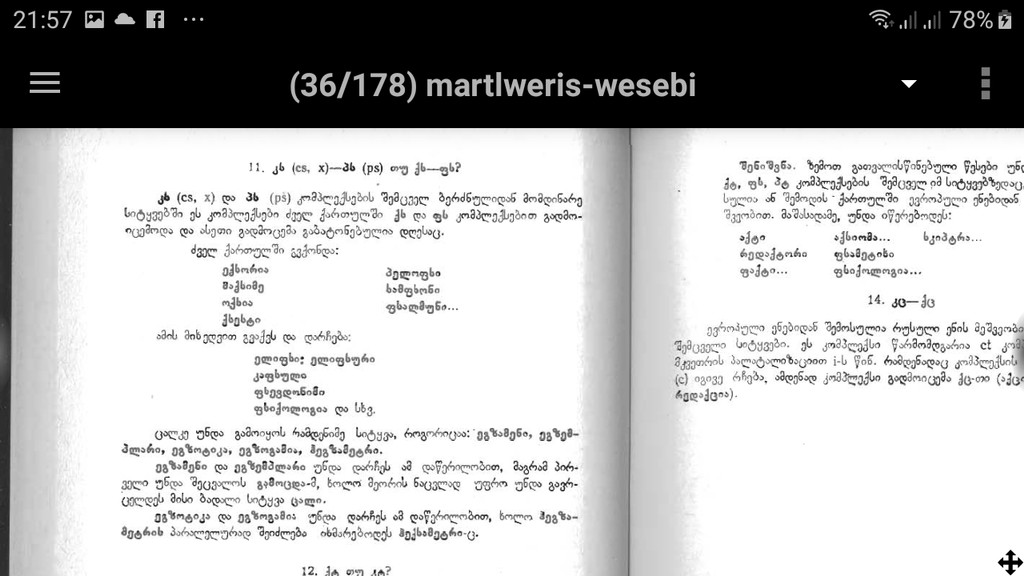 21:57
78%
(36/178) martlweris-wesebi
11. კს (cs, x)—პს (ps) თუ ქს—ფს?
კს (cs, x) და პს (ps) კომპლექსების შემცველ ბერძნულიდან მომდინარე
სიტყვებში ეს კომპლექსები ძველ ქართულში ქს და ფს კომპლექსებით გადმო-
იცემოდა და ასეთი გადმოცემა გაბატონებულია დღესაც.
ძველ ქართულში გვქონდა:
ექსორია პელოფსი
მაქსიმე სამფსონი
ოქსია ფსალმუნი...
ქსესტი
ამის მიხედვით გვაქვს და დარჩება:
ელიფსი: ელიფსური
კაფსული
ფსევდონიმი
ფსიქოლოგია და სხვ.
ცალკე უნდა გამოიყოს რამდენიმე სიტყვა, როგორიცაა: ეგზამენი, ეგზემ-
პლარი, ეგზოტიკა, ეგზოგამია, ჰეგზამეტრი.
ეგზამენი და ეგზემპლარი უნდა დარჩეს ამ დაწერილობით, მაგრამ პირ-
ველი უნდა შეცვალოს გამოცდა-მ, ხოლო მეორის ნაცვლად უფრო უნდა გავრ-
ცელდეს მისი ბადალი სიტყვა ცალი.
ეგზოტიკა და ეგზოგამია უნდა დარჩეს ამ დაწერილობით, ხოლო ჰეგზა-
მეტრის პარალელურად შეიძლება იხმარებოდეს ჰექსამეტრი-ც.
12. ქტ თუ კტ?
შენიშვნა. ზემოთ გათვალისწინებული წესები
ქტ, ფს, პტ კომპლექსების შემცველ იმ
სულია ან შემოდის ქართულში ევროპული ენებიდან
შვეობით. მაშასადამე, უნდა იწერებოდეს:
აქტი აქსიომა... სკიპტრა...
რედაქტორი ფსამეტიხი
ფაქტი... ფსიქოლოგია...
14. კც—ქც
ევროპული ენებიდან შემოსულია რუსული ენის მეშვეობი
შემცველი სიტყვები. ეს კომპლექსი წარმომდგარია ct კომ
მკვეთრის პალატალიზაციით i-ს წინ. რამდენადაც კომპლექსის
(c) იგივე რჩება, ამდენად კომპლექსი გადმოიცემა ქც-თი (აქცი
რედაქცია).